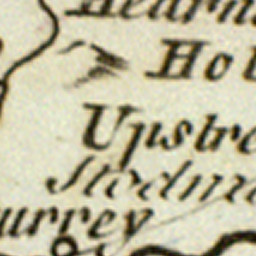 Hearn
Hol
Upstre
Stedma
urrey